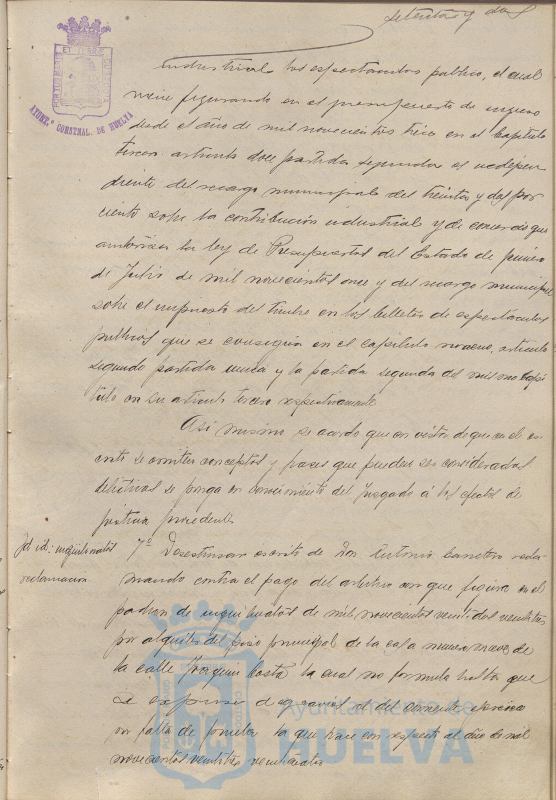 setenta y dos
PORTUS MARIS ET TERRE CUSTODIA
AYUNT.º CONSTNAL. DE HUELVA
industrial los espectaculos publico, el cual
viene figurando en el presupuesto de ingreso
desde el año de mil novecientos trece en el Capitulo
tercero articulo doce partida segunda es indepen
diente del recargo municipal del treinta y dos por
ciento sobre la contribución industrial y de comercio que
autoriza la ley de Presupuestos del Estado de primero
de Julio de mil novecientos once y del recargo municipal
sobre el impuesto del timbre en los billetes de espectaculos
publicos que se consigna en el capitulo noveno, articulo
segundo partida unica y la partida segunda del mismo Capi
tulo en su articulo tercero respectivamente
Asi mismo se acordó que en vista de que en el es
crito se emiten conceptos y frases que pueden ser consideradas
delictivas se ponga en conocimiento del Juzgado á los efectos de
justicia procedentes
Id id: inquilinatos
reclamación
7º Desestimar escrito de Don Antonio Carretero recla
mando contra el pago del arbitrio con que figura en el
padron de inquilinatos de mil novecientos veintidos veintitres
por alquiler del piso principal de la casa numero nueve de
la calle Joaquin Costa la cual no formula hasta que
se expuso d agravios al del corriente ejercicio
en falta de que hace con respecto al año de mil
novecientos veintitres veinticuatro
Ayuntamiento de
HUELVA